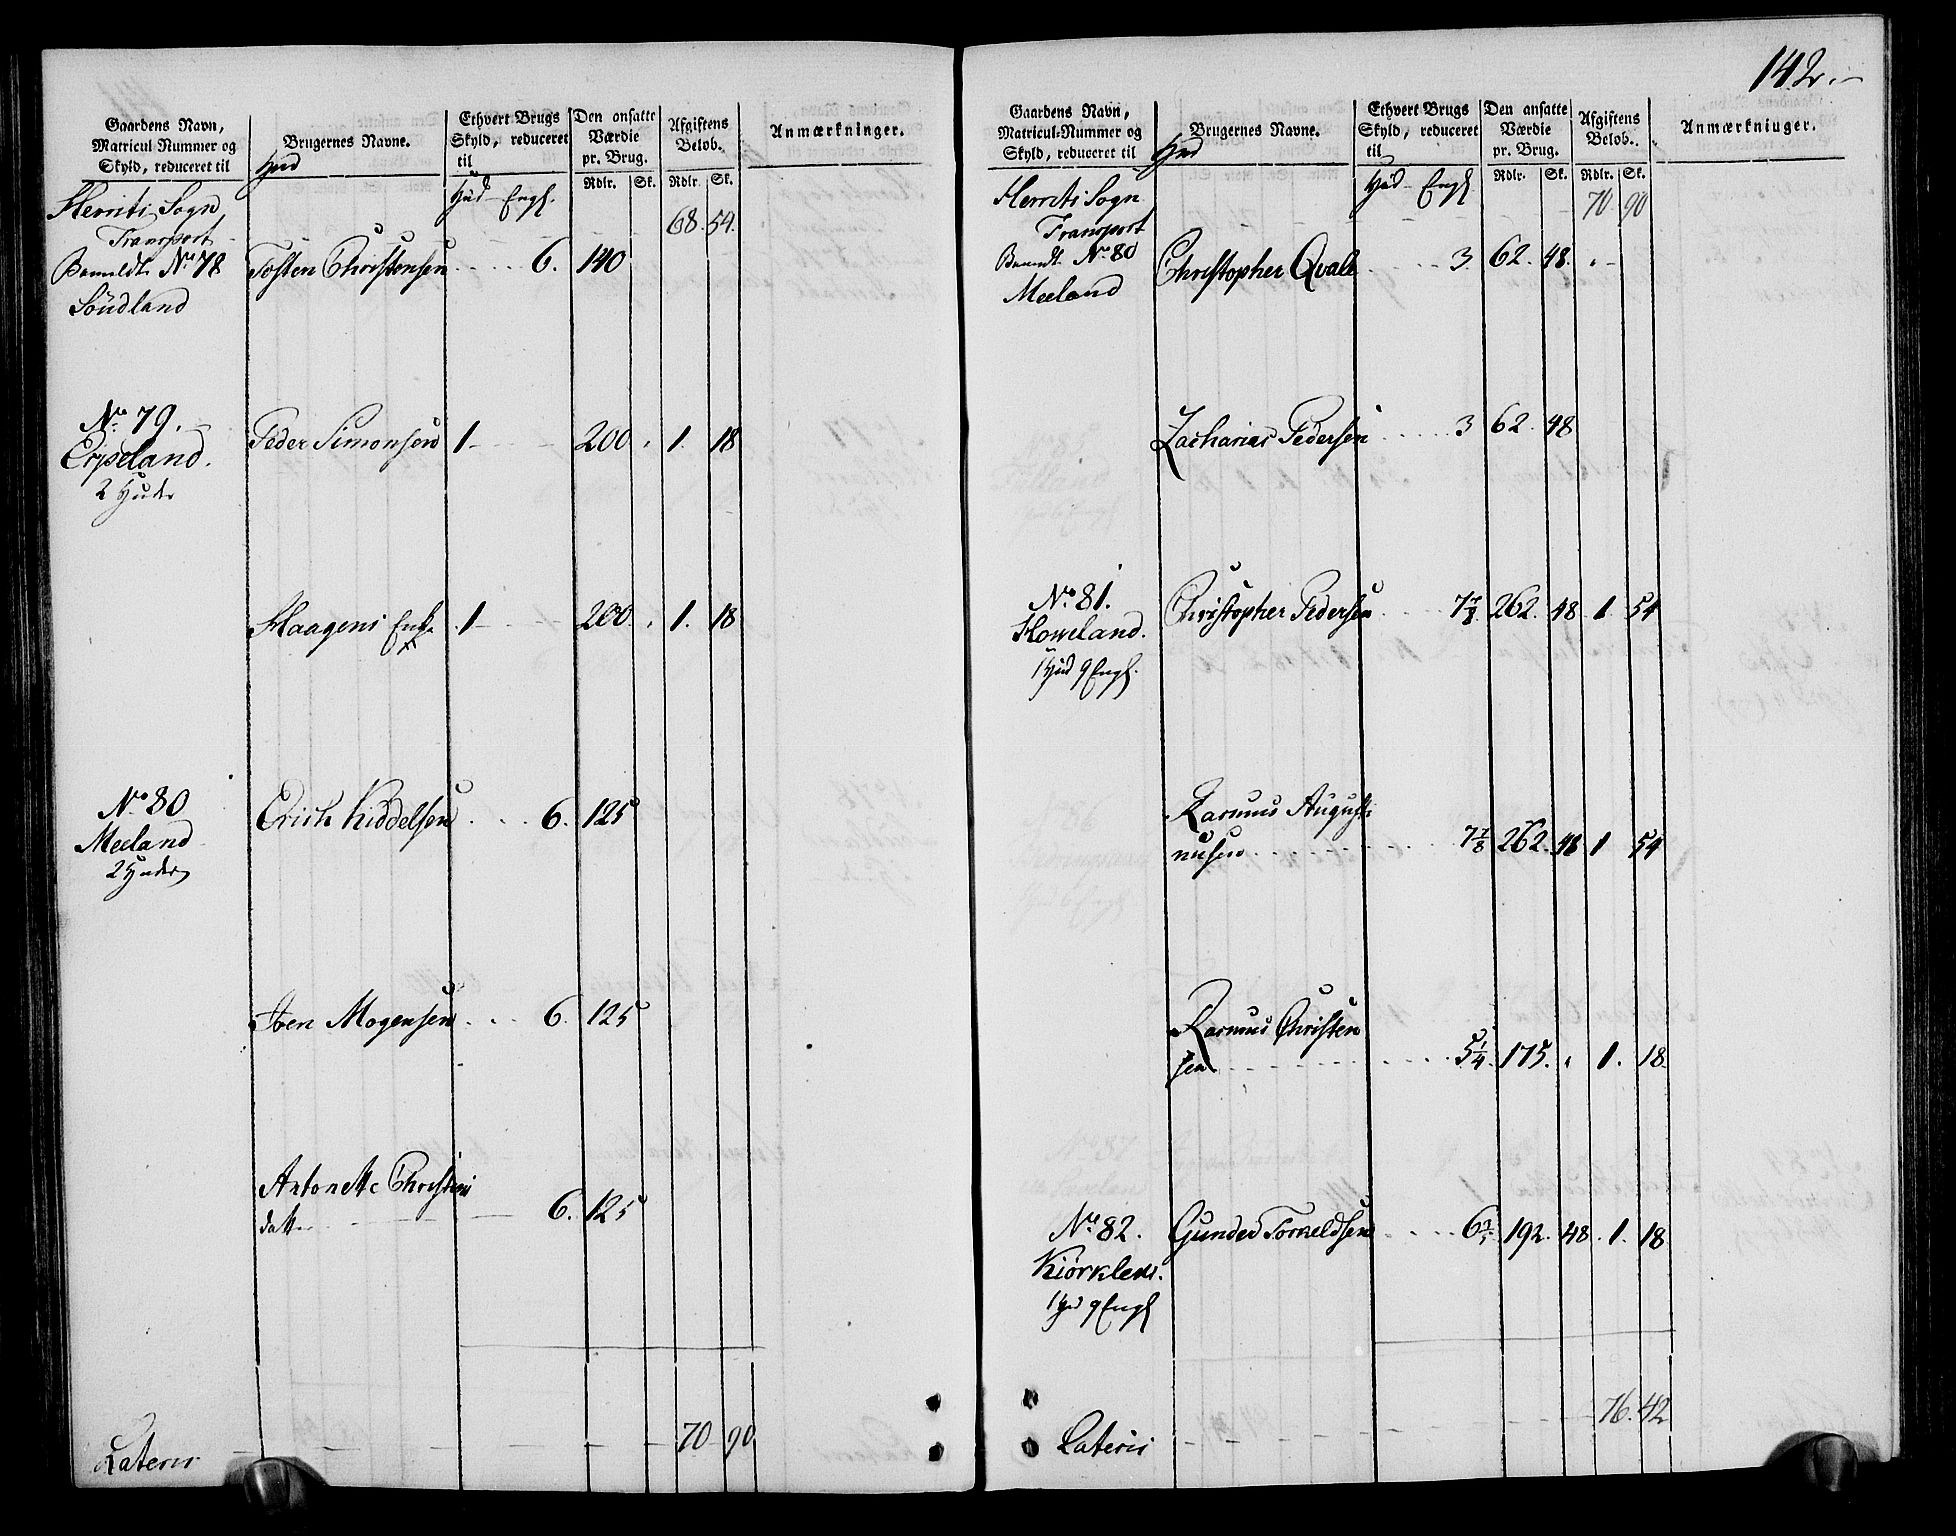 142.
Gaardens Navn, Matricul-Nummer og Skyld, reduceret til
Brugernes Navne.
Ethvert Brugs Skyld, reduceret til
Den ansatte Værdie pr. Brug.
Afgiftens Beløb.
Anmærkninger.
Hud
Hud Engl.
Rdlr. Sk. Rdlr. Sk.
Sogn
Transport 68. 54.
No 78 Tosten Christensen 6. 140
Söudland
No 79. Peder Simonsen 1 200 1. 18
Erpeland.
2 Huder
Haagens Enke 1 200. 1. 18
No 80 Erich Kiddelsen 6. 125
Meeland
2 Huder
Iver Mogensen 6. 125
Antonette Christens
datter 6. 125
Lateris 70 90
Gaardens Navn, Matricul-Nummer og Skyld, reduceret til
Brugernes Navne.
Ethvert Brugs Skyld, reduceret til
Den ansatte Værdie pr. Brug.
Afgiftens Beløb.
Anmærkninger.
Hud
Hud Engl
Rdlr. Sk. Rdlr. Sk.
Sogn
Transport 70 90
No 80 Christopher Qvale 3 62. 48.
Meeland
Zacharias Pedersen 3 62. 48
No 81. Christopher Pedersen 7 7/8 262. 48 1. 54
Howeland.
1 Hud 9 Engl.
Rasmus August
nusen 7 7/8 262. 48 1 54
Rasmus Christen
sen 5 1/4 175. 1. 18.
No 82. Gunder Torkeldsen 192. 48. 1. 18
Kiørkleiv.
1 Hud 9 Engl
Lateris 76. 42